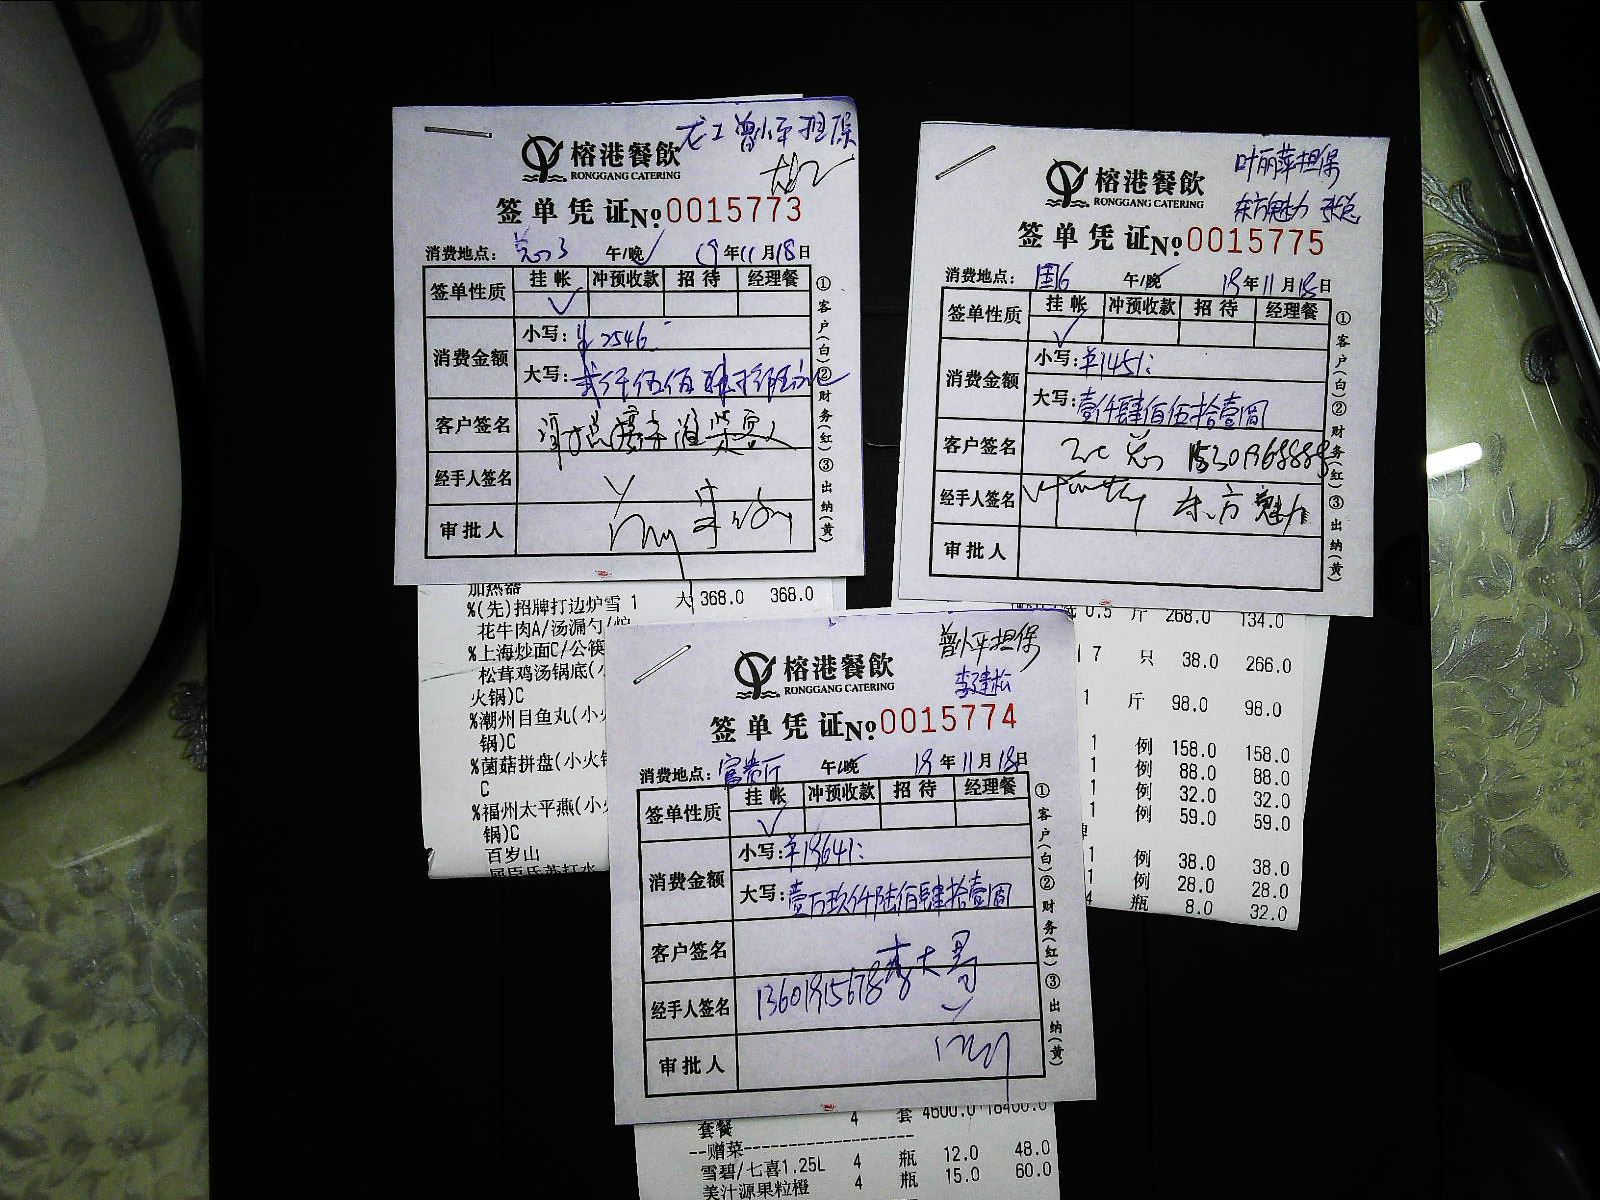 龙工曾小平担保
榕港餐飲
RONGGANG CATERING
签单凭证 No 0015773
消费地点： 午/晚 19年11月18日
签单性质 挂帐 冲预收款 招待 经理餐
消费金额 小写：¥2546
大写：贰仟伍佰肆拾陆元
客户签名
经手人签名
审批人
①客户(白)②财务(红)③出纳(黄)
加热器
%(先)招牌打边炉雪 1 大 368.0 368.0
花牛肉A/汤漏勺/炉
%上海炒面C/公筷
松茸鸡汤锅底(小
火锅)C
%潮州目鱼丸(小火
锅)C
%菌菇拼盘(小火锅
C
%福州太平燕(小火
锅)C
百岁山
屈臣氏苏打水
叶丽萍担保
东方魅力 张总
榕港餐飲
RONGGANG CATERING
签单凭证 No 0015775
消费地点：国6 午/晚 19年11月18日
签单性质 挂帐 冲预收款 招待 经理餐
消费金额 小写：¥1451
大写：壹仟肆佰伍拾壹圆
客户签名
经手人签名 东方魅力
审批人
①客户(白)②财务(红)③出纳(黄)
0.5 斤 268.0 134.0
7 只 38.0 266.0
1 斤 98.0 98.0
1 例 158.0 158.0
1 例 88.0 88.0
1 例 32.0 32.0
1 例 59.0 59.0
1 例 38.0 38.0
1 例 28.0 28.0
4 瓶 8.0 32.0
曾小平担保
李建松
榕港餐飲
RONGGANG CATERING
签单凭证 No 0015774
消费地点：富贵厅 午/晚 19年11月18日
签单性质 挂帐 冲预收款 招待 经理餐
消费金额 小写：¥19641
大写：壹万玖仟陆佰肆拾壹圆
客户签名 李大哥
经手人签名 13601915678
审批人
①客户(白)②财务(红)③出纳(黄)
套餐 4 套 4600.0 18400.0
--赠菜--------------------
雪碧/七喜1.25L 4 瓶 12.0 48.0
美汁源果粒橙 4 瓶 15.0 60.0